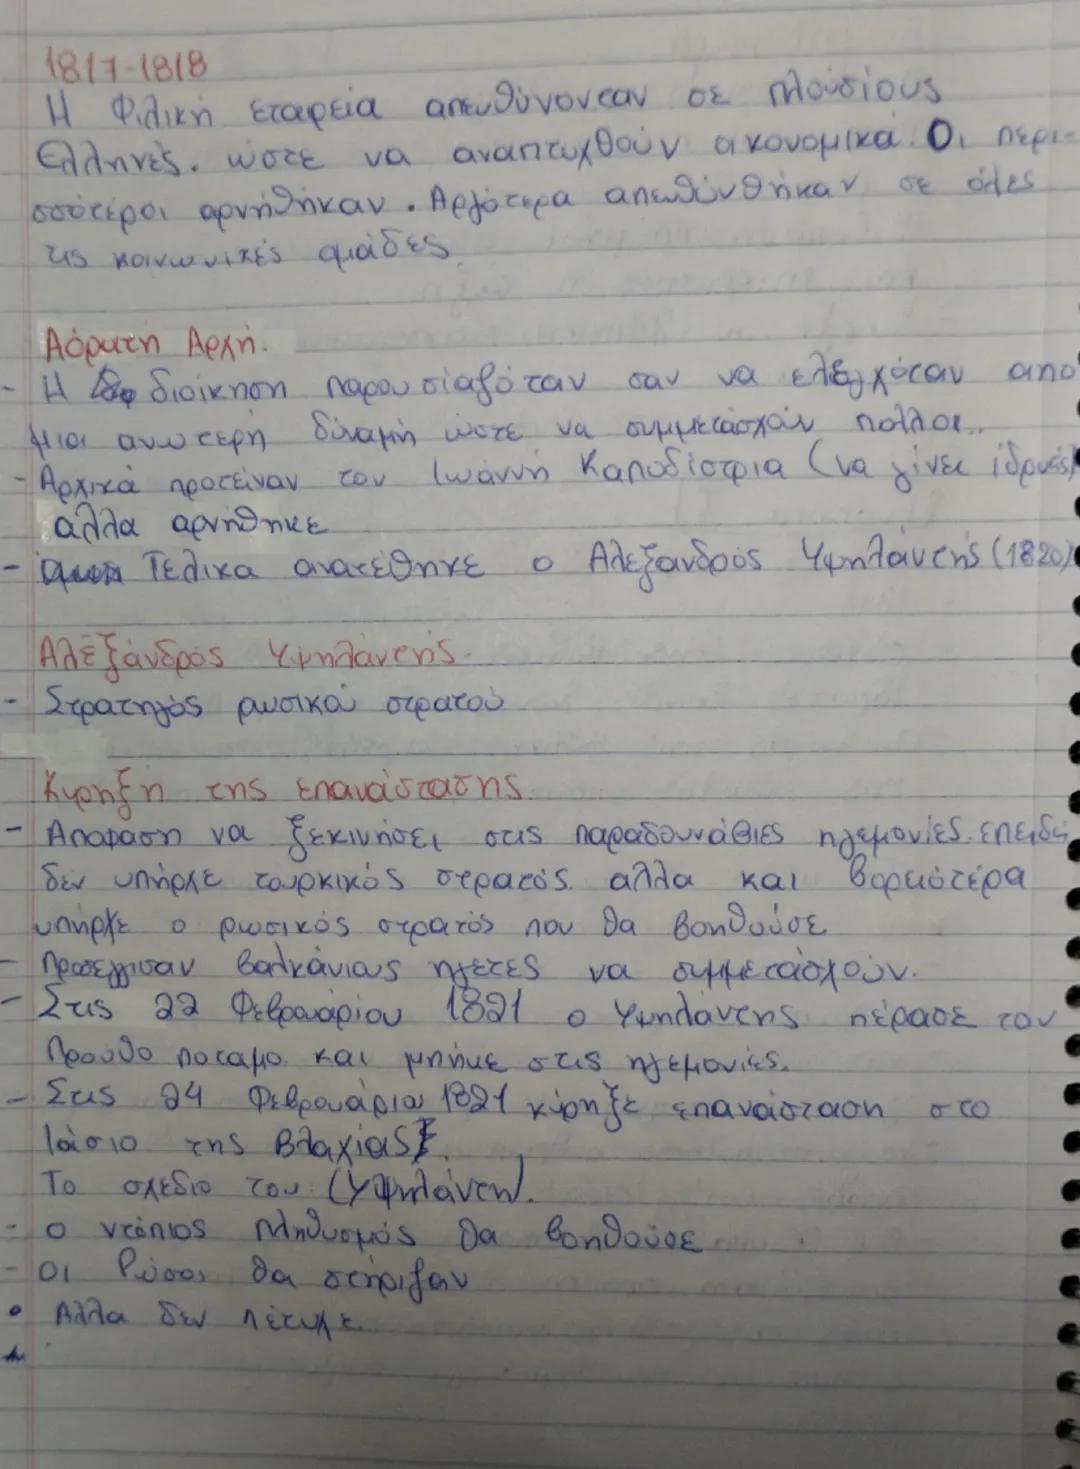 1817-1818
Η Φιλική εταιρεία απευθύνονταν σε πλούσιους
Έλληνες. ώστε να αναπτυχθούν οικονομικά. Οι περι-
σσότεροι αρνήθηκαν. Αργότερα απευθύνθηκαν σε όλες
τις κοινωνικές ομάδες.
Αόρατη Αρχή.
- Η διοίκηση παρουσιαζόταν σαν να ελέγχόταν απο
μια ανωτερη δύναμη ώστε να συμμετάσχουν πολλοι..
- Αρχικά προτείναν τον Ιωάννη Καποδίστρια (να γίνει ιδρυτής)
άλλα αρνήθηκε
- Τελικα ανατέθηκε ο Αλέξανδρος Υψηλάντης (1820)
Αλέξάνδρος Υψηλάντης.
- Στρατηγός ρωσικού στρατού
Κυρηξη της επανάστασης.
- Αποφαση να ξεκινήσει στις παραδουνάβιες ηγεμονίες. επειδή
δεν υπήρχε τουρκικός στρατός. αλλα και βορειότερα
υπήρχε ο ρωσικός στρατός που θα βοηθούσε
- Προσέγγισαν βαλκάνιους ηγέτες να συμμετάσχουν.
- Στις 22 Φεβρουαρίου 1821 ο Υψηλάντης πέρασε τον
Προύθο ποταμο. και μπήκε στις ηγεμονίες.
- Στις 24 Φεβρουάριου 1821 κύρηξε επανάσταση στο
Ιάσιο της Βλαχίας.
Το σχέδιο του: (Υψηλάντη).
- ο ντόπιος πληθυσμός θα βοηθούσε
- οι Ρώσοι θα στήριζαν
• Αλλα δεν πέτυχε